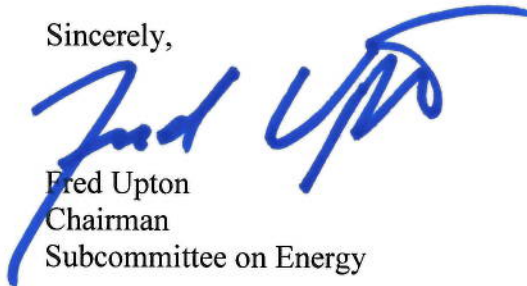 Sincerely,
Fred Upton
Fred Upton
Chairman
Subcommittee on Energy